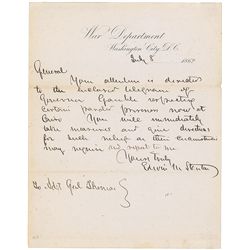 War Department
Washington City, D.C.
July 8 1862
General
Your attention is directed
to the inclosed telegram of
Governor Gamble respecting
certain prisoners now at
You will immediately
take measures and give directions
for such relief as their
may require and report to me
Yours truly
Edwin M Stanton
To Adjt Genl Thomas